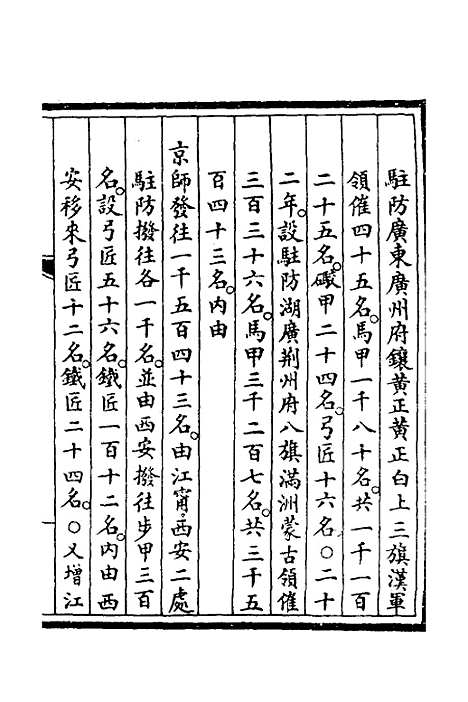 駐防廣東廣州府鑲黃正黃正白上三旗漢軍
領催四十五名。馬甲一千八十名。共一千一百
二十五名。礮甲二十四名。弓匠十六名〇二十
二年。設駐防湖廣荆州府八旗滿洲蒙古領催
三百三十六名。馬甲三千二百七名。共三千五
百四十三名。內由
京師發往一千五百四十三名。由江甯西安二處
駐防撥往各一千名。並由西安撥往步甲三百
名。設弓匠五十六名。鐵匠一百十二名。內由西
安移來弓匠十二名。鐵匠二十四名。〇又增江